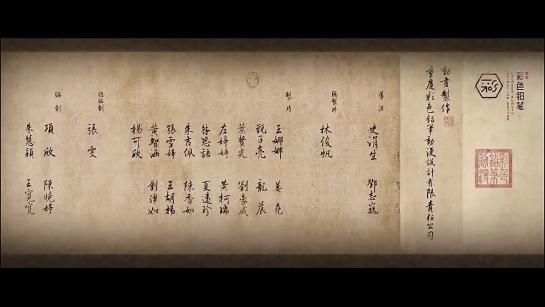 彩色铅笔
動畫製作
重慶彩色鉛筆動漫設計有限責任公司
導演
史涓生 鄧志巍
總製片
林俊帆
製片
王娜娜 姜堯
甄子亮 龍晨
蔡賢光 劉豪威
左婷婷 黃柯瑞
思語 夏遠珍
朱吉佩 陳香如
張雪婷 王胡楊
黃智涵 劉津如
楊可欣
總編劇
張雯
編劇
項欣 陳曉婷
朱慧穎 王寬寬